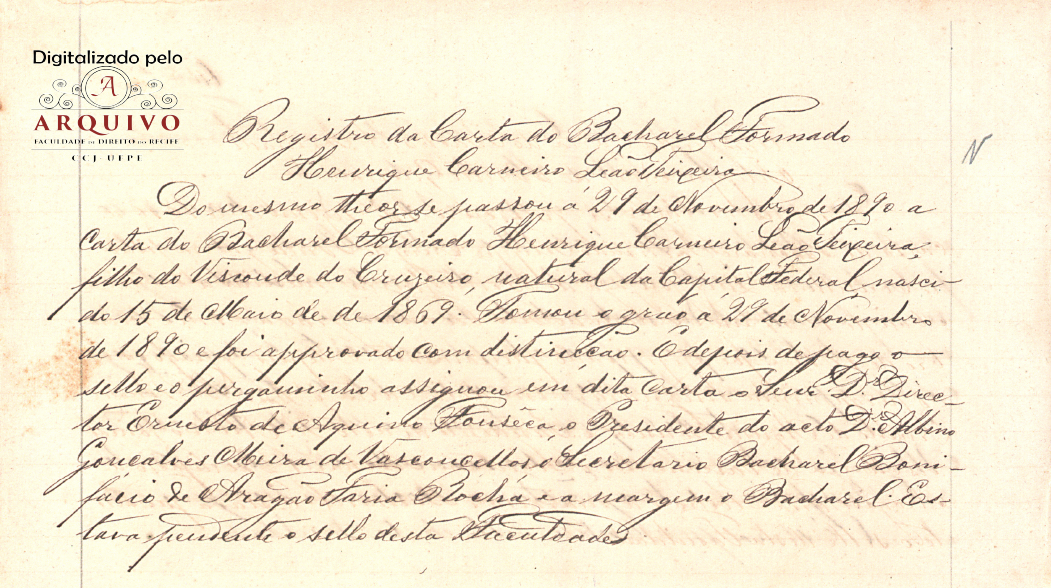 Digitalizado pelo
A
ARQUIVO
FACULDADE DE DIREITO DO RECIFE
CCJ-UFPE
Registro da Carta do Bacharel Formado
Henrique Carneiro Leão Teixeira
N
Do mesmo theor se passou á 29 de Novembro de 1890 a
Carta do Bacharel Formado Henrique Carneiro Leão Teixeira,
filho do Visconde do Cruzeiro, natural da Capital Federal nasci-
do 15 de Maio de de 1869. Tomou o grao á 29 de Novembro
de 1890 e foi approvado com distincção. E depois de pago o
sello e o pergaminho assignou em dita carta o Senr. Dr. Direc-
tor Ernesto de Aquino Fonsêca, o Presidente do acto Dr. Albino
Goncalves Meira de Vasconcellos, o Secretario Bacharel Boni-
fácio de Aragão Faria Rocha e a margem o Bacharel. Es-
tava pendente o sello desta Faculdade